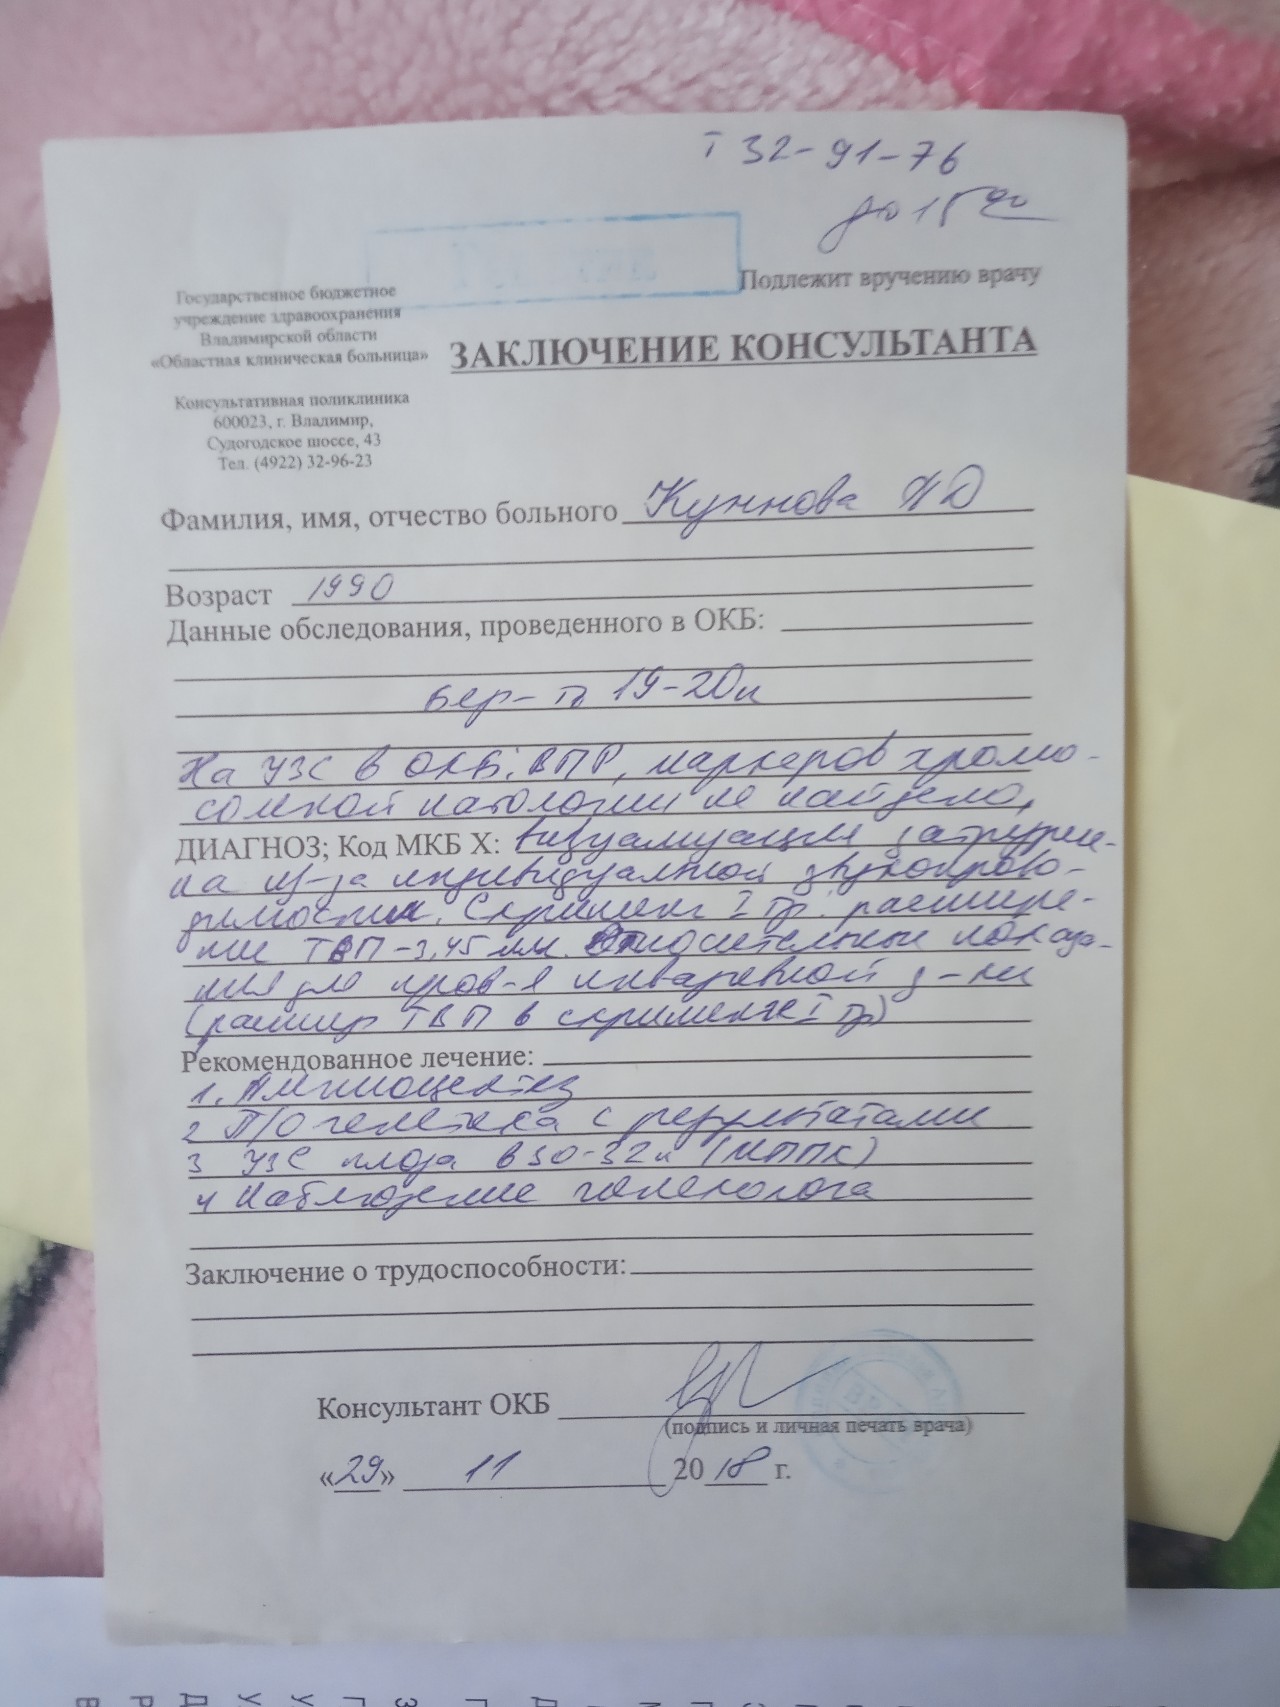 т 32-91-76
до 15 00
Подлежит вручению врачу
Государственное бюджетное
учреждение здравоохранения
Владимирской области
«Областная клиническая больница»
ЗАКЛЮЧЕНИЕ КОНСУЛЬТАНТА
Консультативная поликлиника
600023, г. Владимир,
Судогодское шоссе, 43
Тел. (4922) 32-96-23
Фамилия, имя, отчество больного Куннова НД
Возраст 1990
Данные обследования, проведенного в ОКБ:
Бер-ть 19-20н
На УЗС в ОКБ: ВПР, маркеров хромо-
сомной патологии не найдено,
ДИАГНОЗ; Код МКБ X: визуализация затрудне-
на из-за индивидуальной звукопрово-
димости. Скрининг I тр: расшире-
ние ТВП-3,45 мм. Относительные показа-
ния для пров-я инвазивной д-ки
(расшир ТВП в скрининге I тр)
Рекомендованное лечение:
1. Амниоцентез
2 П/О генетика с результатами
3 УЗС плода в 30-32н (МППК)
4 Наблюдение гинеколога
Заключение о трудоспособности:
Консультант ОКБ
(подпись и личная печать врача)
«29» 11 2018 г.